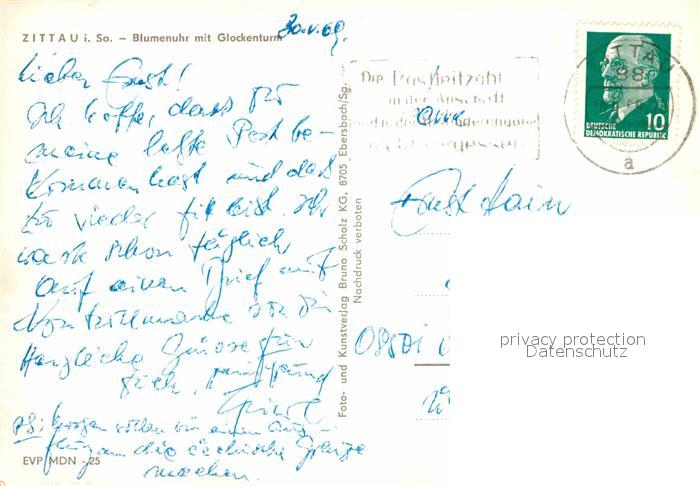 ZITTAU i. Sa. – Blumenuhr mit Glockenturm
30.V.69.
Lieber Ernst!
Ich hoffe, dass Du
meine letzte Post be-
kommen hast und dass
Du wieder fit bist. Ich
warte schon täglich
auf einen Brief mit
von Dir
Herzliche Grüsse für
Dich,
PS: Morgen wollen wir einen Aus-
flug an die čechische Grenze
machen.
EVP MDN -25
Foto- und Kunstverlag Bruno Scholz KG, 8705 Ebersbach/Sa.
Nachdruck verboten
Die Postleitzahl
in der Anschrift
nicht vergessen
ZITTAU
88
a
10
DEUTSCHE
DEMOKRATISCHE REPUBLIK
Ernst
privacy protection
Datenschutz